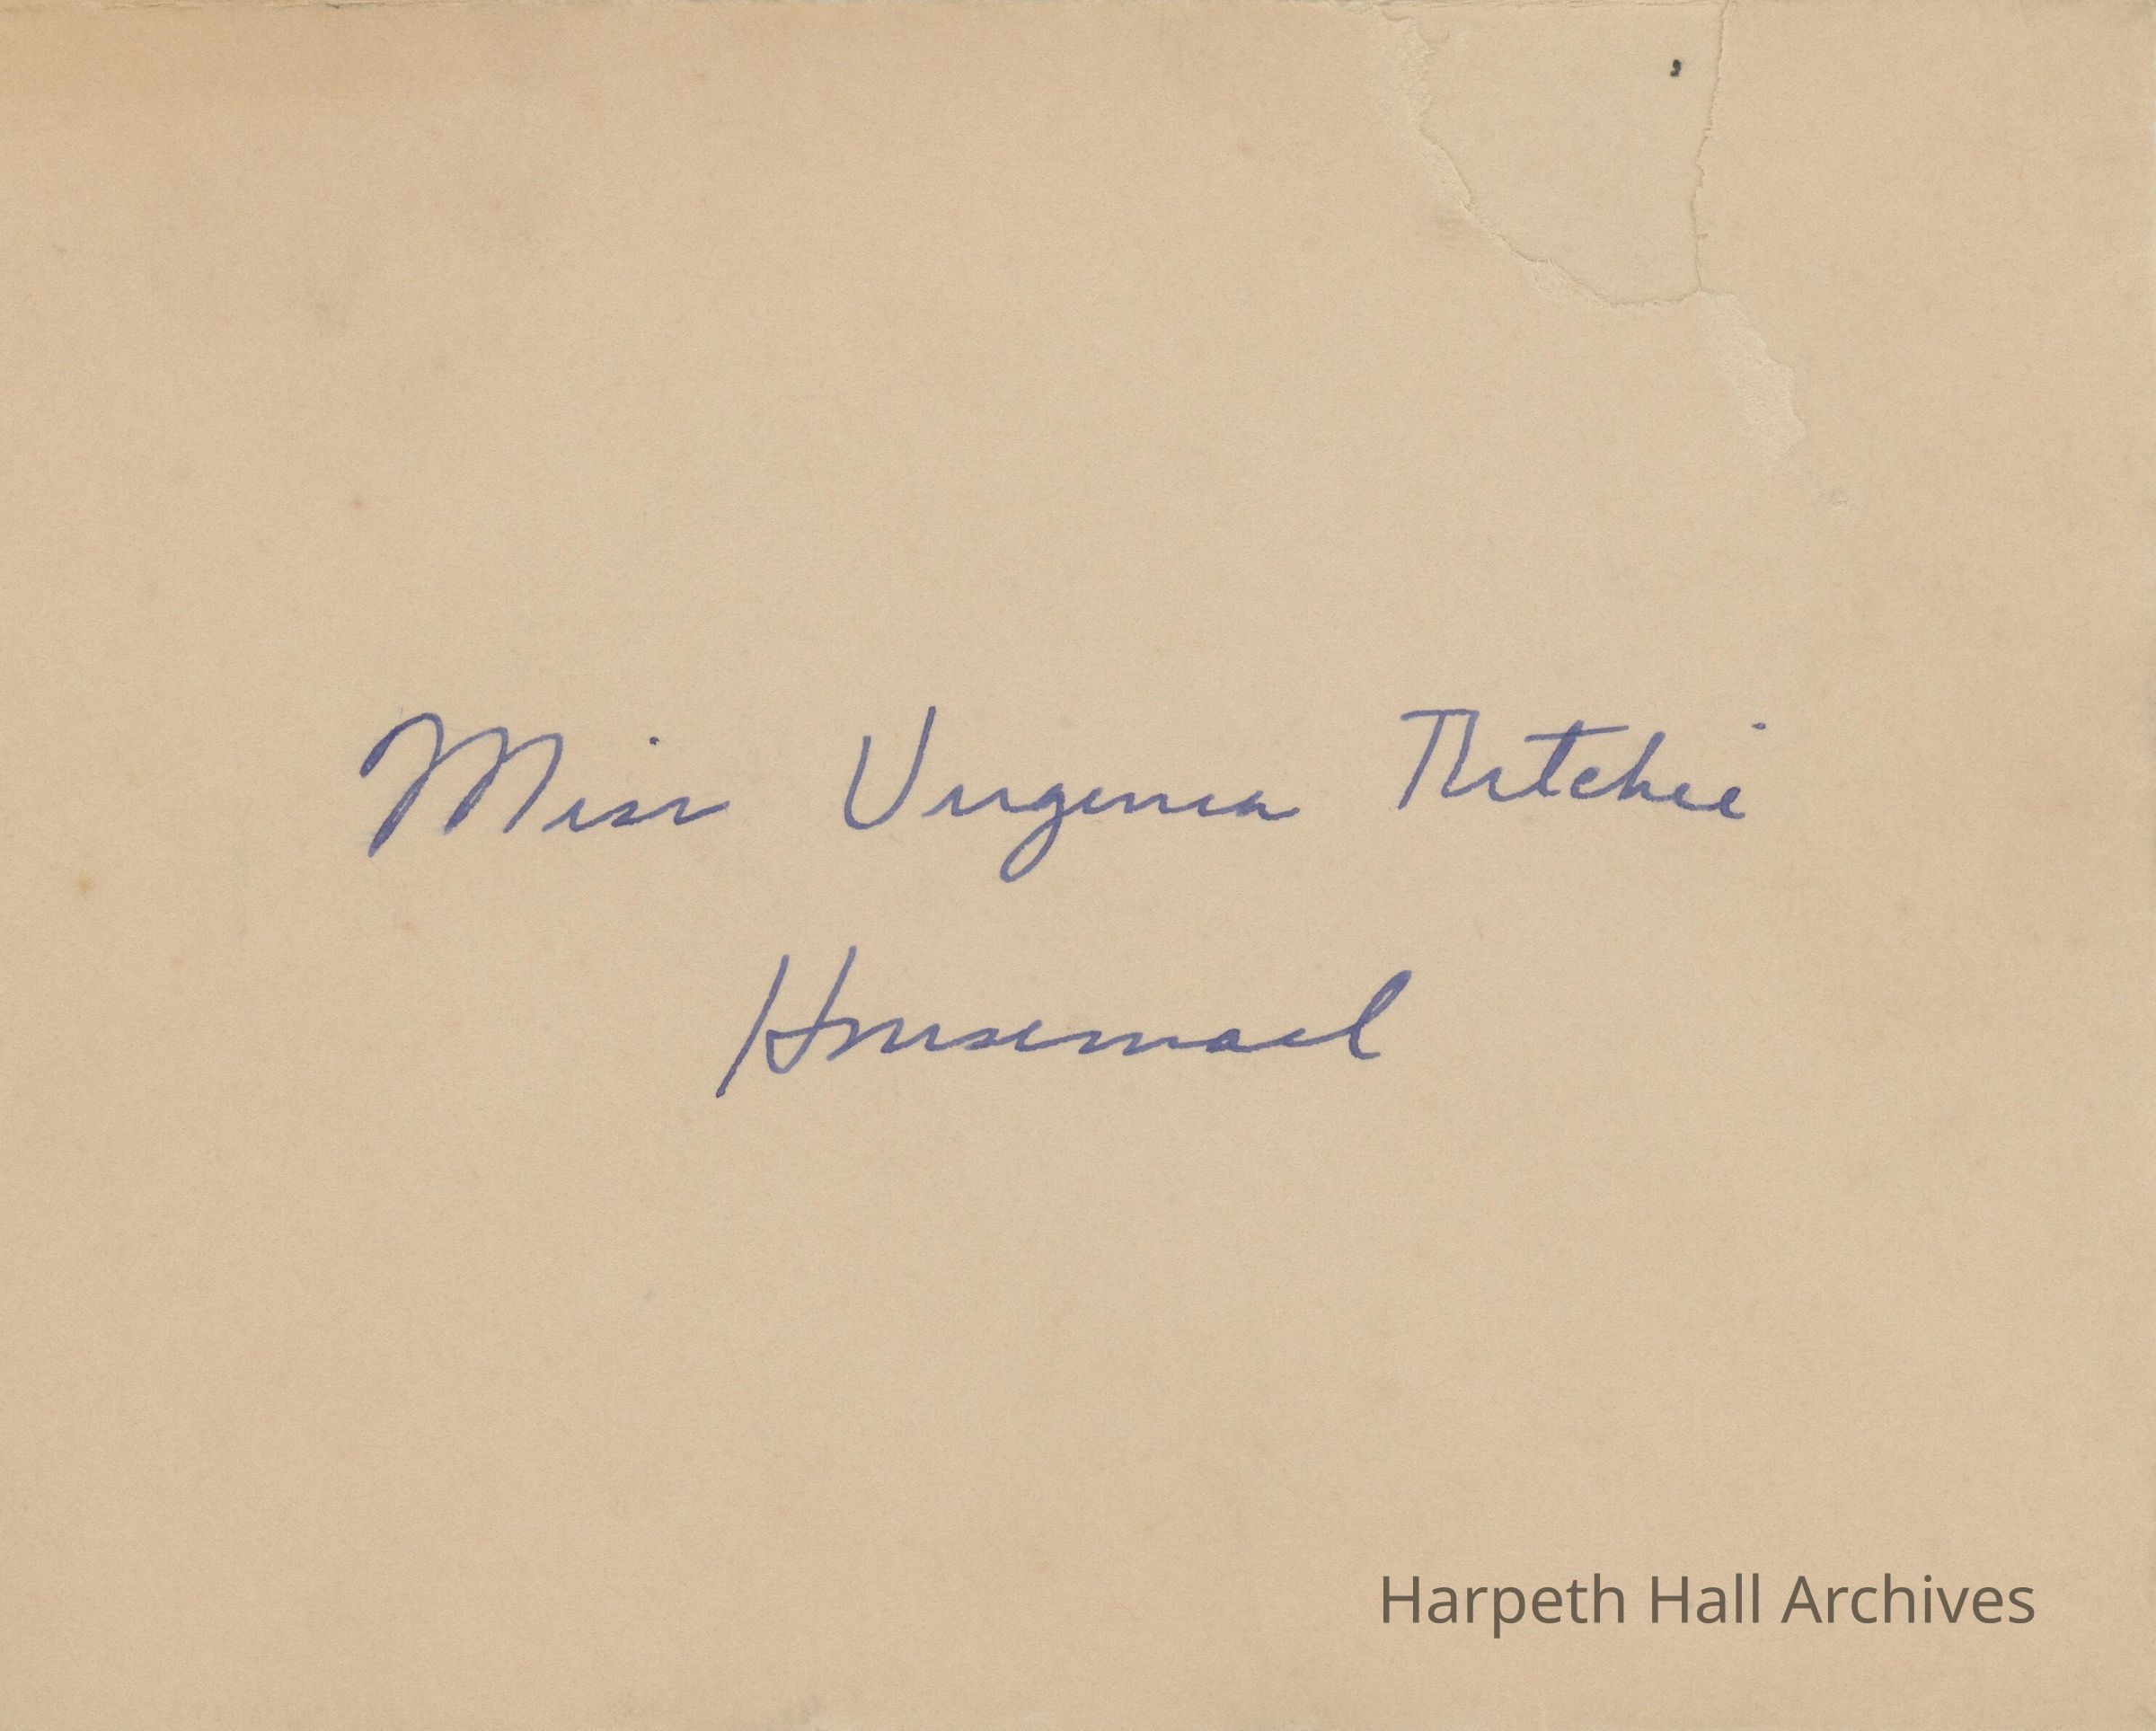 Miss Virginia Ritchie
Housemail
Harpeth Hall Archives